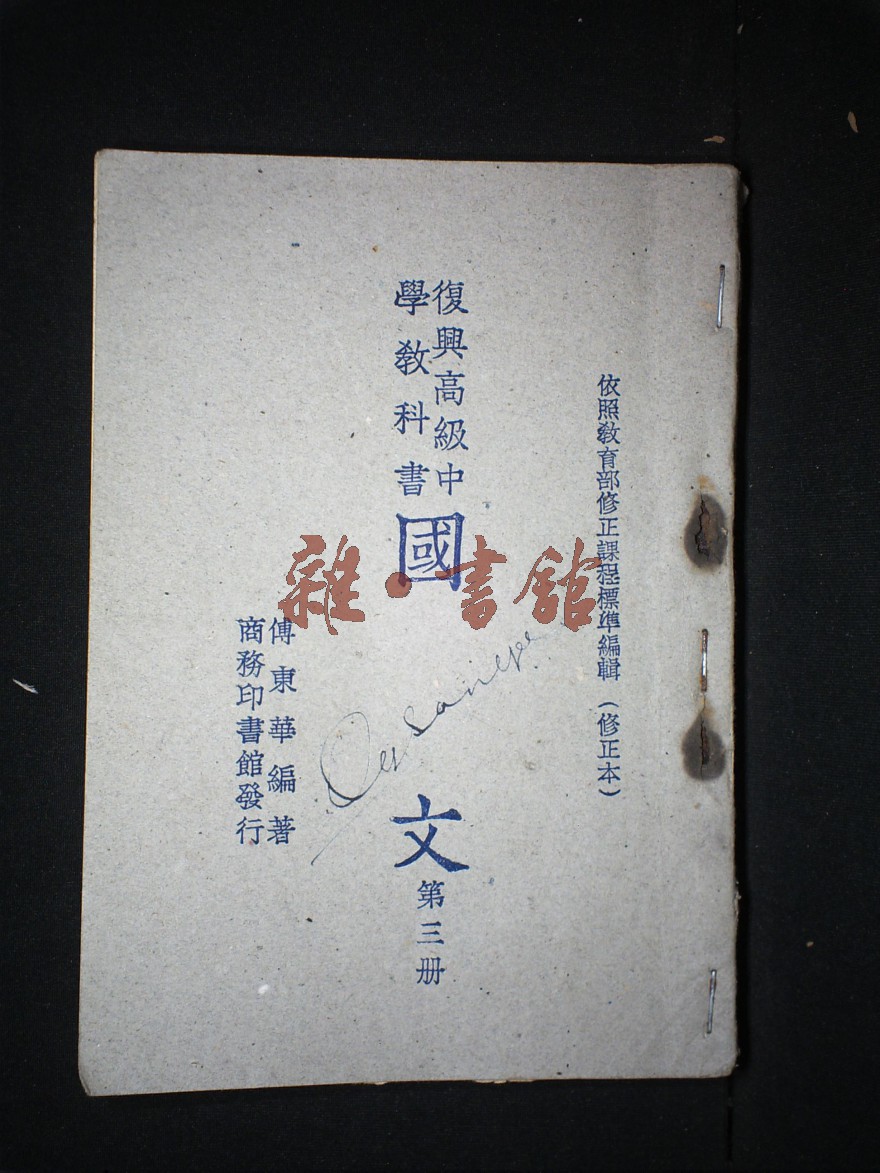 依照教育部修正課程標準編輯（修正本）
復興高級中
學教科書
國文
第三册
傅東華編著
商務印書館發行
雜·書館